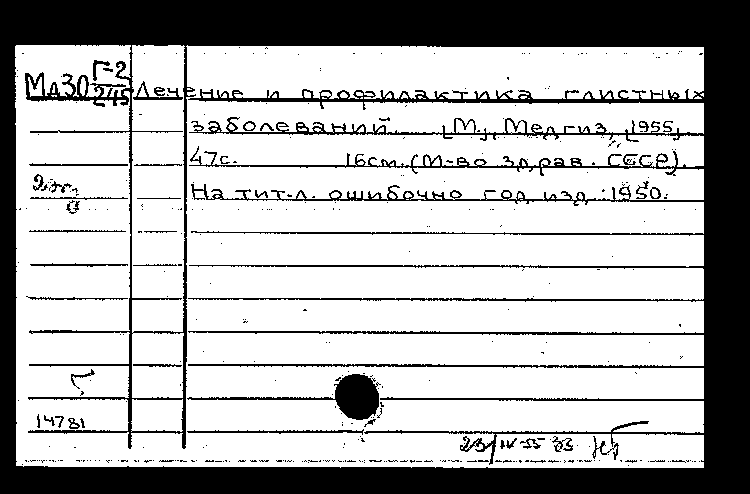 МдЗО Г-2/245 Лечение и профилактика глистных
заболеваний. [М.], Медгиз, [1955],
47с. 16см. (М-во здрав. СССР).
На тит.л. ошибочно год изд.:1950.
2 эк.
Г
14781
23/IV-55